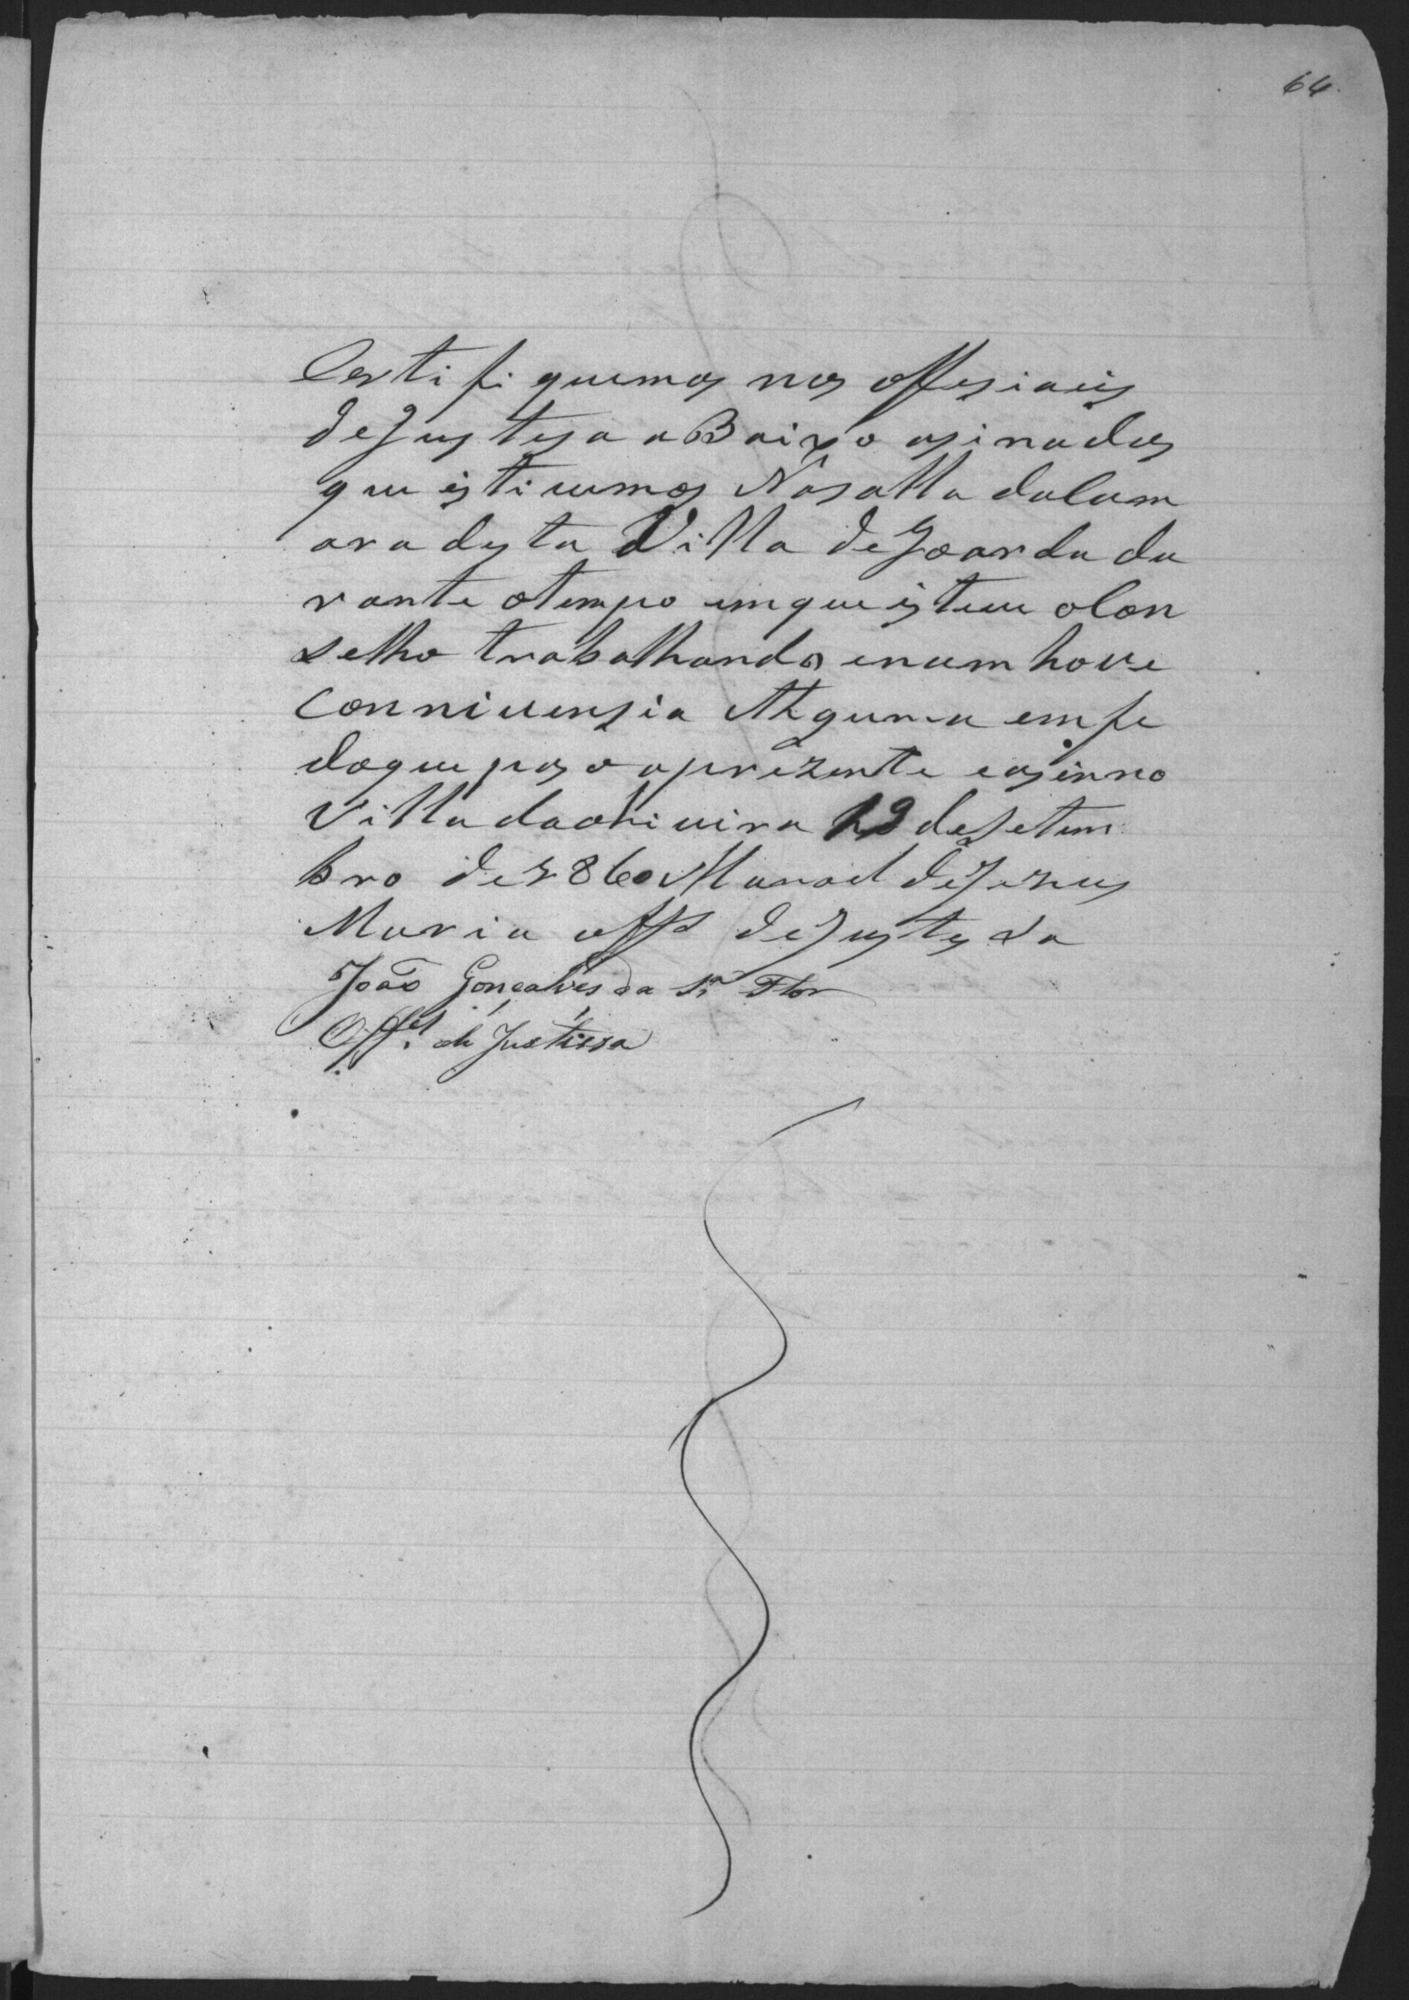 64
Certifiquemos nos offesiais
deJustesa aBaixo asinados
que estivemos Nasalla daCam
ara desta Villa deGoarda du
rante otempo emque esteve oCon
selho trabalhando enum hove
Connivensia Alguma em fe
doque paso aprezente easinno
Villa da 12 deSetem
bro de 1860 Manoel deJezus
Maria offal deJustesa
João Gonçalves da Sa Flor
Offal de Justissa